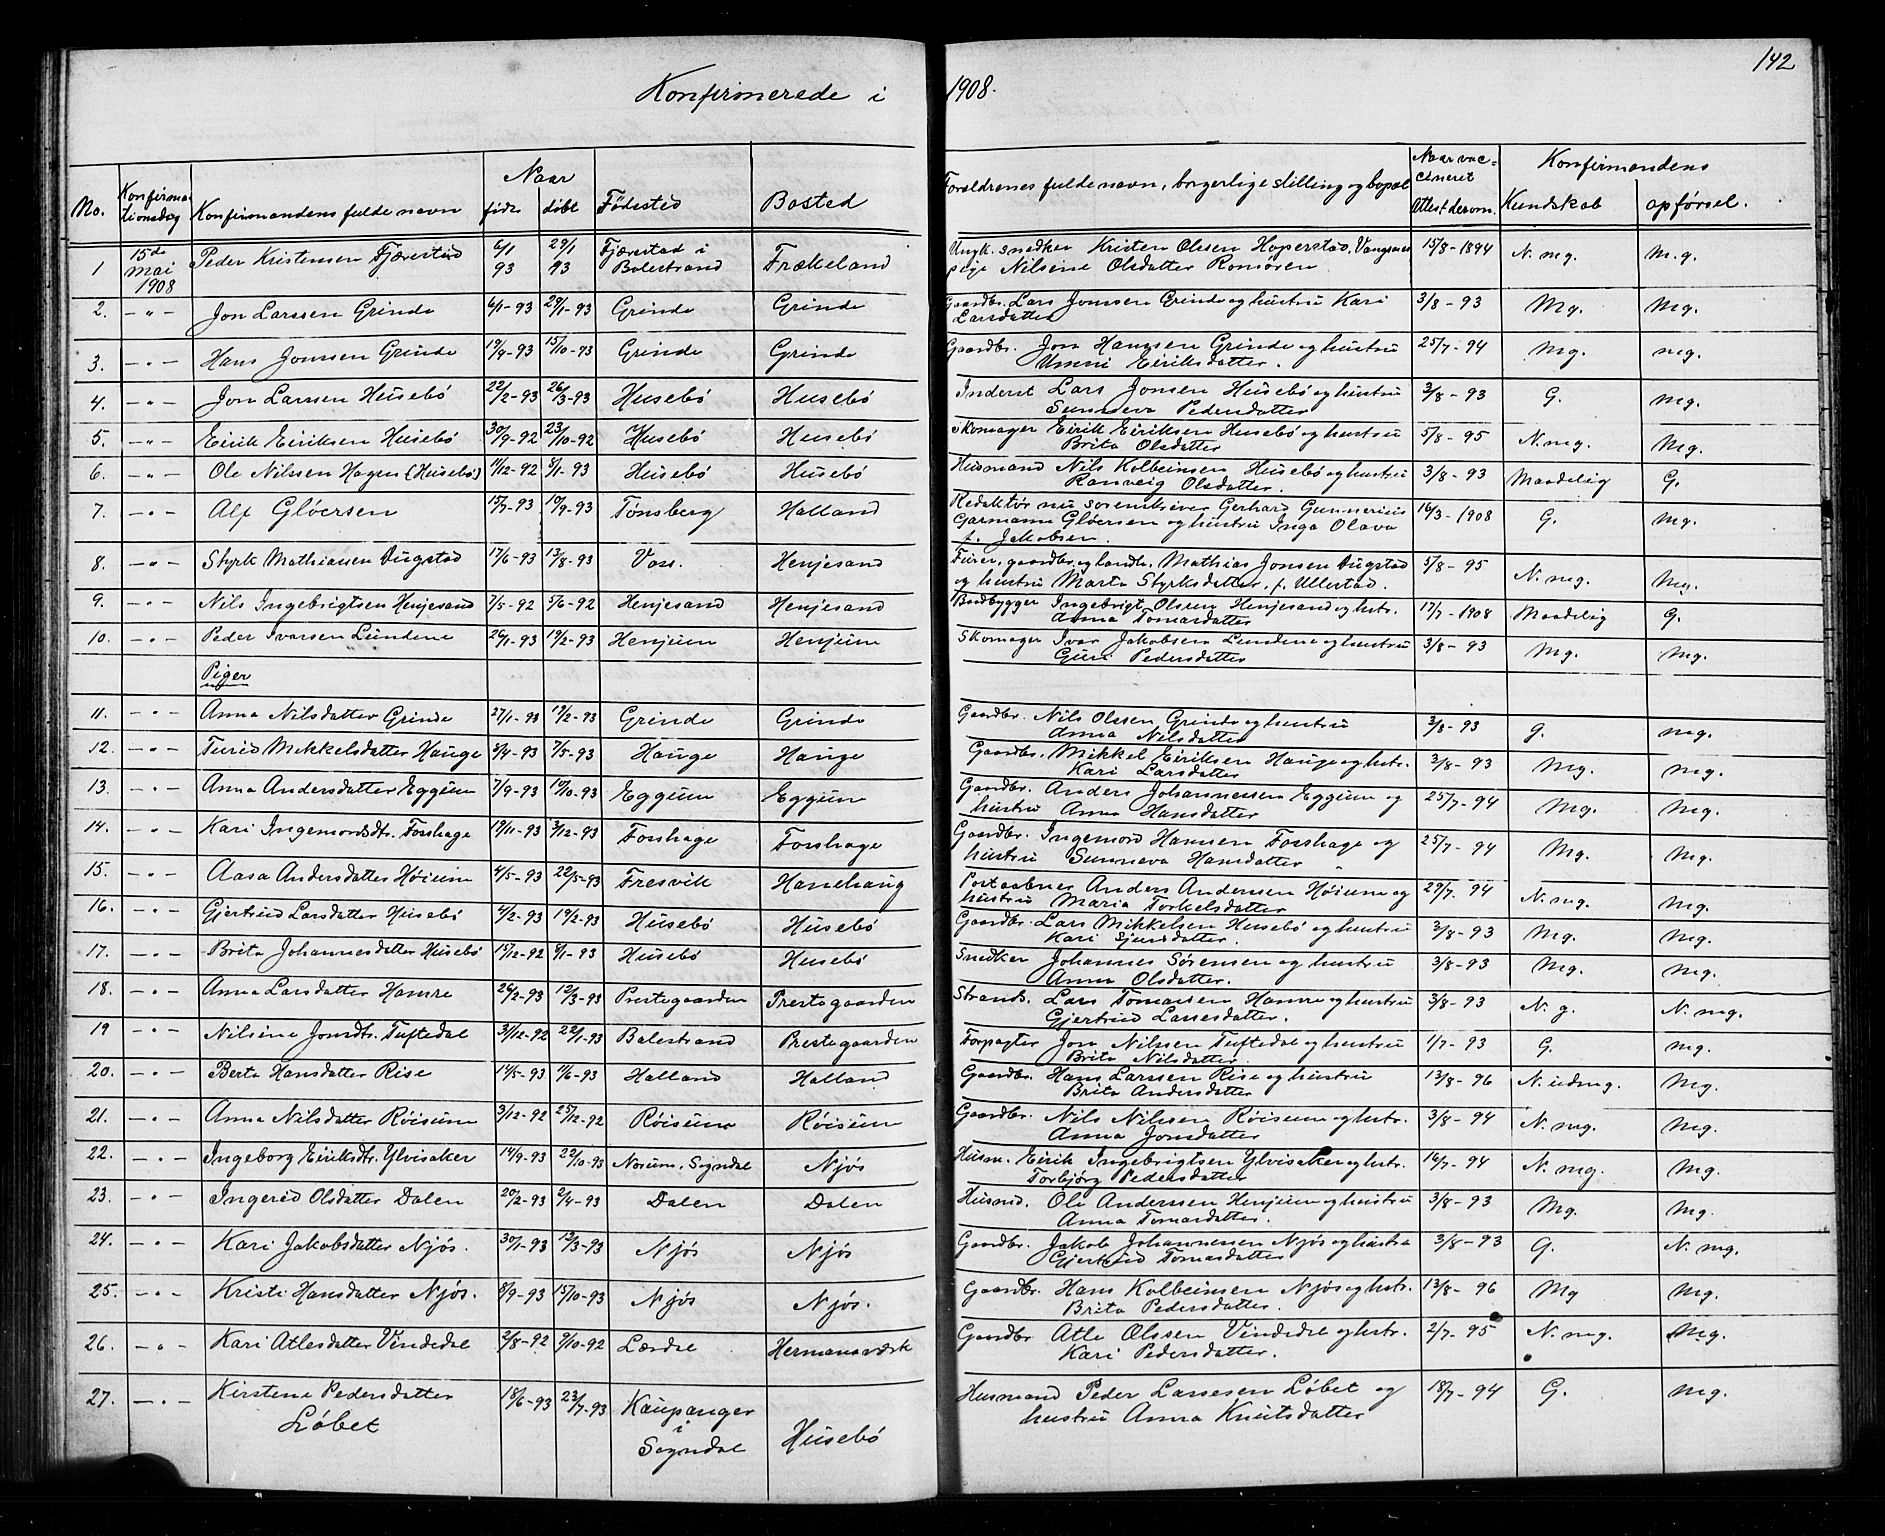 142
Konfirmerede i 1908.
No. | Konfirmationsdag | Konfirmandens fulde navn | Naar født | døbt | Fødested | Bosted | Forældrenes fulde navn, borgerlige stilling og bopæl | Naar vaccineret Attest derom. | Konfirmandens Kundskab | opførsel.
1 | 15de Mai 1908 | Peder Kristensen Fjærestad | 6/1 93 | 29/1 93 | Fjærestad i Balestrand | Frækeland | Ungk. snedker Kristen Olssen Hoperstad, Vangsnes pige Nilsine Olsdatter Romøren | 15/8-1894 | N. mg. | M.g.
2. | -"- | Jon Larssen Grinde | 6/1-93 | 29/1-93 | Grinde | Grinde | Gaardbr. Lars Jonssen Grinde og hustru Kari Larsdatter | 3/8-93 | Mg. | Mg.
3. | -"- | Hans Jonssen Grinde | 19/9-93 | 15/10-93 | Grinde | Grinde | Gaardbr. Jon Hanssen Grinde og hustru Unni Eiriksdatter. | 25/7-94 | Mg. | mg.
4. | -"- | Jon Larssen Husebø | 22/2-93 | 26/3-93 | Husebø | Husebø | Inderst Lars Jonsen Husebø og hustru Sunneva Pedersdatter | 3/8-93 | G. | Mg.
5. | -"- | Eirik Eiriksen Husebø | 30/9-92 | 23/10-92 | Husebø | Husebø | Skomager Eirik Eiriksen Husebø og hustru Brita Olsdatter | 5/8-95 | N. mg. | Mg.
6. | -"- | Ole Nilssen Hagen (Husebø) | 11/12-92 | 8/1-93 | Husebø | Husebø | Husmand Nils Kolbeinsen Husebø og hustru Ranveig Olsdatter. | 3/8-93 | Maadelig | G.
7. | -"- | Alf Gløersen | 15/7-93 | 10/9-93 | Tønsberg | Halland | Redaktør nu sorenskriver Gerhard Gunnerius Garmann Gløersen og hustru Inga Olava f. Jakobsen. | 16/3-1908 | G. | Mg.
8. | -"- | Styrk Mathiassen Dugstad | 17/6-93 | 13/8-93 | Voss. | Henjesand | Furer, gaardbr. og landh. Mathias Jonsen Dugstad og hustru Marta Styrksdatter, f. Ullestad. | 5/8-95 | N. mg. | Mg.
9. | -"- | Nils Ingebrigtsen Henjesand | 7/5-92 | 5/6-92 | Henjesand | Henjesand | Baadbygger Ingebrigt Olssen Henjesand og hstr. Anna Tomasdatter | 17/7-1908 | Maadelig | G.
10. | -"- | Peder Ivarsen Lundene | 26/1-93 | 19/2-93 | Henjum | Henjum | Skomager Ivar Jakobsen Lundene og hustru Guri Pedersdatter | 3/8-93 | Mg. | Mg.
Piger
11. | -"- | Anna Nilsdatter Grinde | 27/1-93 | 19/2-93 | Grinde | Grinde | Gaardbr. Nils Olssen Grinde og hustru Anna Nilsdatter | 3/8-93 | G. | mg.
12. | -"- | Turid Mikkelsdatter Hauge | 3/4-93 | 7/5-93 | Hauge | Hauge | Gaardbr. Mikkel Eiriksen Hauge og hstr. Kari Larsdatter | 3/8-93 | Mg. | Mg.
13. | -"- | Anna Andersdatter Eggum | 7/9-93 | 10/10-93 | Eggum | Eggum | Gaardbr. Anders Johannessen Eggum og hustru Anna Hansdatter | 25/7-94 | Mg. | Mg.
14. | -"- | Kari Ingemondsdtr. Fosshage | 19/11-93 | 3/12-93 | Fosshage | Fosshage | Gaardbr. Ingemond Hanssen Fosshage og hustru Sunneva Hansdatter | 25/7-94 | Mg. | Mg.
15. | -"- | Aasa Andersdatter Høium | 4/5-93 | 22/5-93 | Fresvik | Hanehaug | Postaabner Anders Andersen Høium og hustru Maria Torkelsdatter | 29/7-94 | N. mg. | Mg.
16. | -"- | Gjertrud Larsdatter Husebø | 4/2-93 | 19/2-93 | Husebø | Husebø | Gaardbr. Lars Mikkelsen Husebø og hustru Kari Sjursdatter. | 3/8-93 | Mg. | Mg.
17. | -"- | Brita Johannesdatter Husebø | 15/12-92 | 8/1-93 | Husebø | Husebø | Snedker Johannes Sørensen og hustru Anna Olsdatter. | 3/8-93 | Mg. | Mg.
18. | -"- | Anna Larsdatter Hamre | 26/2-93 | 12/3-93 | Prestegaarden | Prestegaarden | Strands. Lars Tomassen Hamre og hustru Gjertrud Lassesdatter. | 3/8-93 | N. g. | N. mg.
19 | -"- | Nilsine Jonsdtr. Tuftedal | 31/12-92 | 22/1-93 | Balestrand | Prestegaarden | Forpagter Jon Nilssen Tuftedal og hustru Brita Nilsdatter | 1/7-93 | G. | Mg.
20. | -"- | Berta Hansdatter Rise | 14/5-93 | 11/6-93 | Halland | Halland | Gaardbr. Hans Larssen Rise og hustru Brita Andersdatter | 13/8-96 | N. udmg. | Mg.
21. | -"- | Anna Nilsdatter Røisum | 3/12-92 | 25/12-92 | Røisum | Røisum | Gaardbr. Nils Nilssen Røisum og hstr. Anna Jonsdatter | 3/8-94 | N. mg. | Mg.
22. | -"- | Ingeborg Eiriksdtr. Ylvisaker | 14/9-93 | 22/10-93 | Norum, Sogndal | Njøs | Husm. Eirik Ingebrigtsen Ylvisaker og hstr. Torbjørg Pedersdatter | 16/7-94 | N. mg. | Mg.
23. | -"- | Ingerid Olsdatter Dalen | 20/2-93 | 2/4-93 | Dalen | Dalen | Husmd. Ole Anderssen Henjum og hustru Anna Tomasdatter. | 3/8-93 | Mg. | Mg.
24. | -"- | Kari Jakobsdatter Njøs. | 30/1-93 | 12/3-93 | Njøs | Njøs | Gaardbr. Jakob Johannessen Njøs og hustru Gjertrud Tomasdatter | 3/8-93 | G. | N. mg.
25. | -"- | Kristi Hansdatter Njøs. | 8/9-93 | 15/10-93 | Njøs | Njøs. | Gaardbr. Hans Kolbeinsen Njøs og hstr. Brita Pedersdatter. | 13/8-96 | Mg | Mg.
26. | -"- | Kari Atlesdatter Vindedal | 2/8-92 | 9/10-92 | Lærdal | Hermansværk | Gaardbr Atle Olssen Vindedal og hstr. Kari Pedersdatter. | 2/7-95 | N. mg. | Mg.
27. | -"- | Kirstene Pedersdatter Løbet | 18/6-93 | 23/7-93 | Kaupanger i Sogndal | Husebø | Husmand Peder Lassesen Løbet og hustru Anna Knutsdatter | 18/7-94 | G. | Mg.